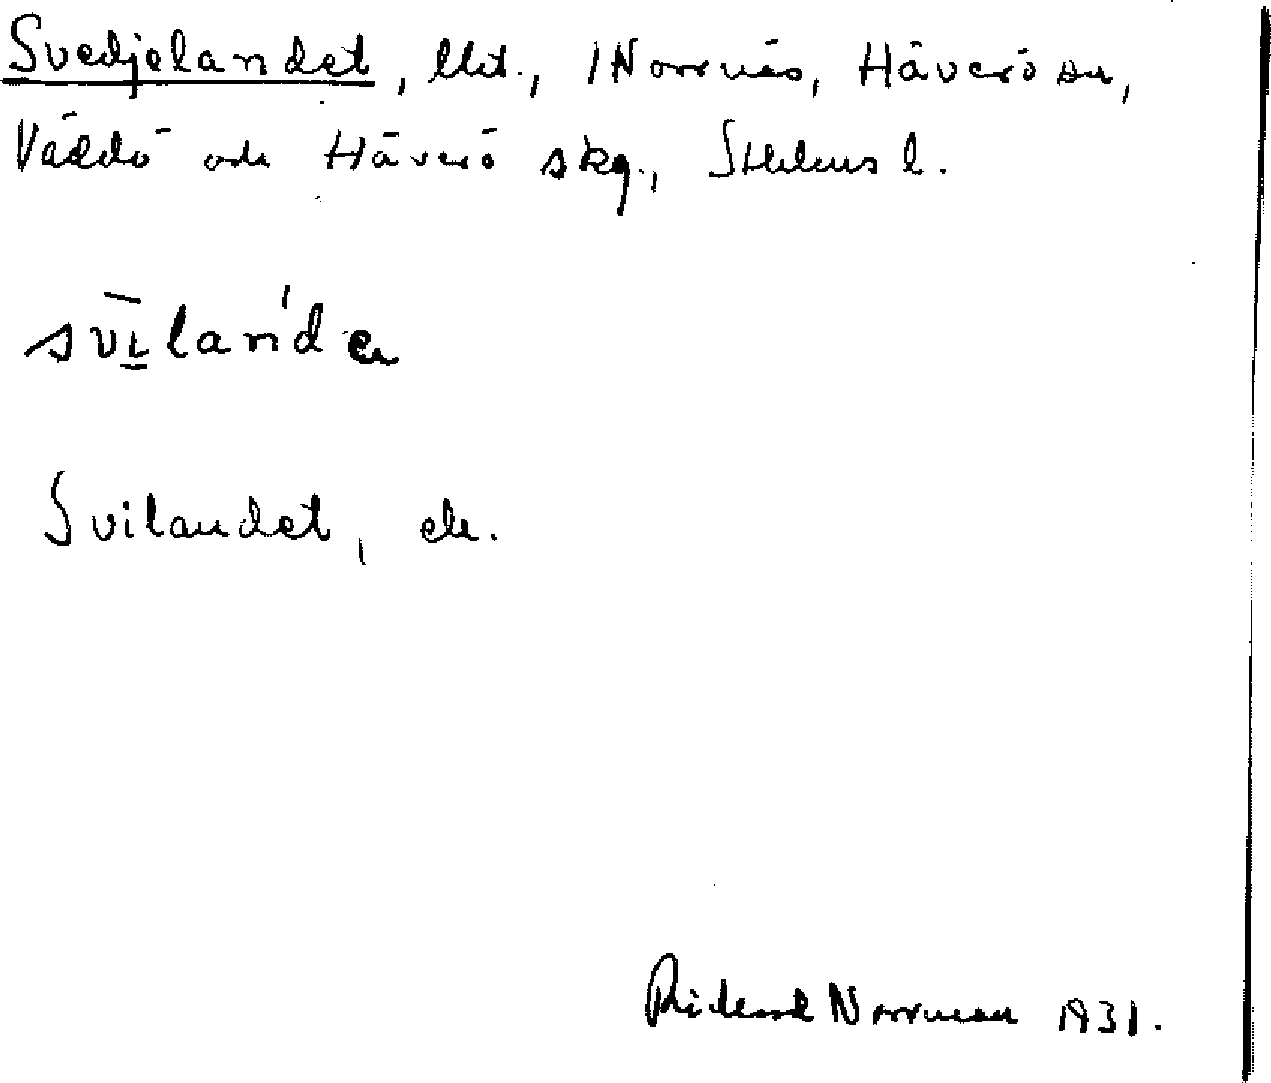 Svedjelandet, Utt., 1 Norrnäs, Häverö sn,
Väddö och Häverö skg., Sthlms l.
Svilandet, ek.
Rickard Norrman 1931.